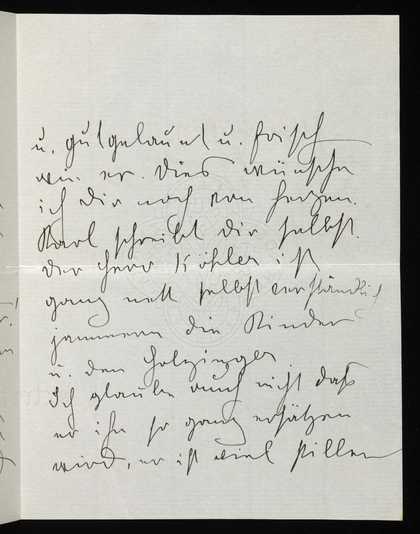 u. gutgelaunt u. frisch
wie er. Dies wünsche
ich Dir noch von Herzen.
Karl schreibt Dir selbst.
Der Herr Köhler ist
ganz nett selbstverständlich
jammern die Kinder
u. den Holzinger
Ich glaube auch nicht daß
er ihn so ganz ersetzen
wird, er ist viel stiller